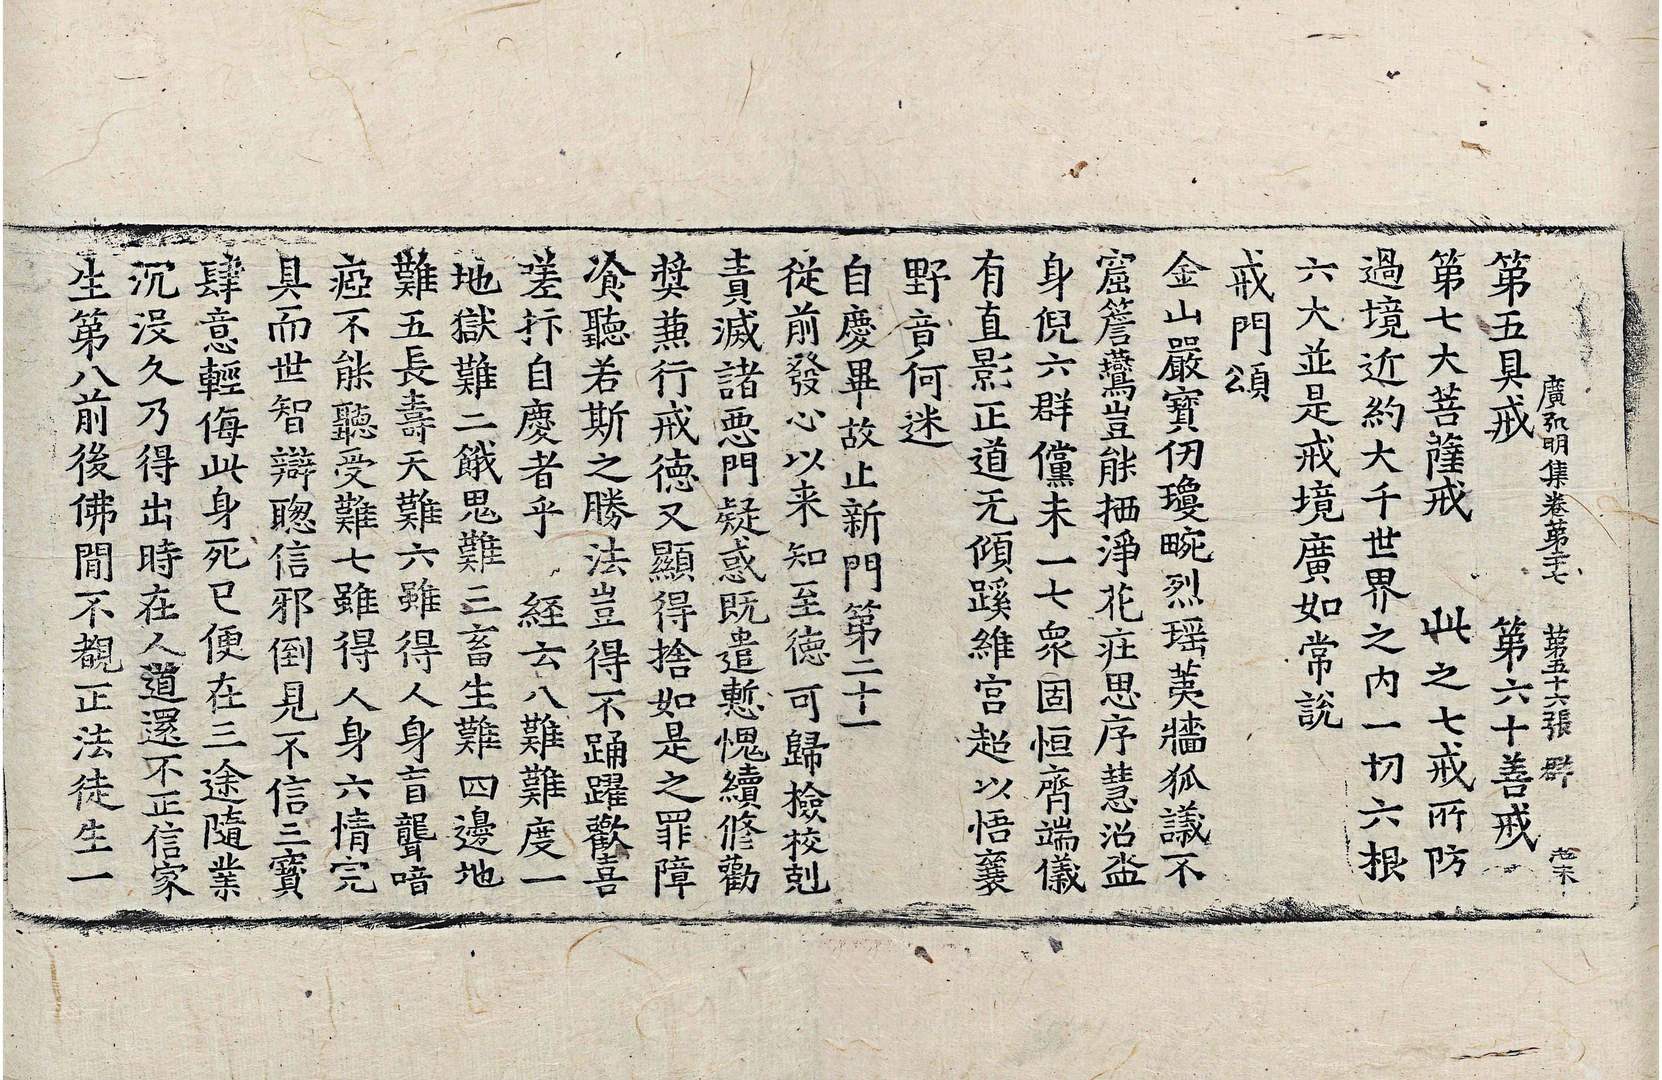 廣弘明集卷第二十七 第五十六張 群
第五具戒 第六十善戒
第七大菩薩戒 此之七戒所防
過境近約大千世界之内一切六根
六大並是戒境廣如常說
戒門頌
金山嚴寶仞瓊畹烈瑶荑牆狐議不
窟簷鷰豈能栖淨花莊思序慧沼盗
身倪六群儻未一七衆固恒齊端儀
有直影正道无傾蹊維宫超以悟襄
野音何迷
自慶畢故止新門第二十一
從前發心以来知至德可歸撿挍剋
責滅諸惡門疑惑既遣慙愧續修勸
奬兼行戒德又顯得捨如是之罪障
飡聽若斯之勝法豈得不踊躍歡喜
嗟抃自慶者乎 経云八難難度一
地獄難二餓鬼難三畜生難四邊地
難五長壽天難六雖得人身盲聾喑
瘂不能聽受難七雖得人身六情完
具而世智辯聰信邪倒見不信三寶
肆意輕侮此身死已便在三途隨業
沉没久乃得出時在人道還不正信家
生第八前後佛閒不覩正法徒生一